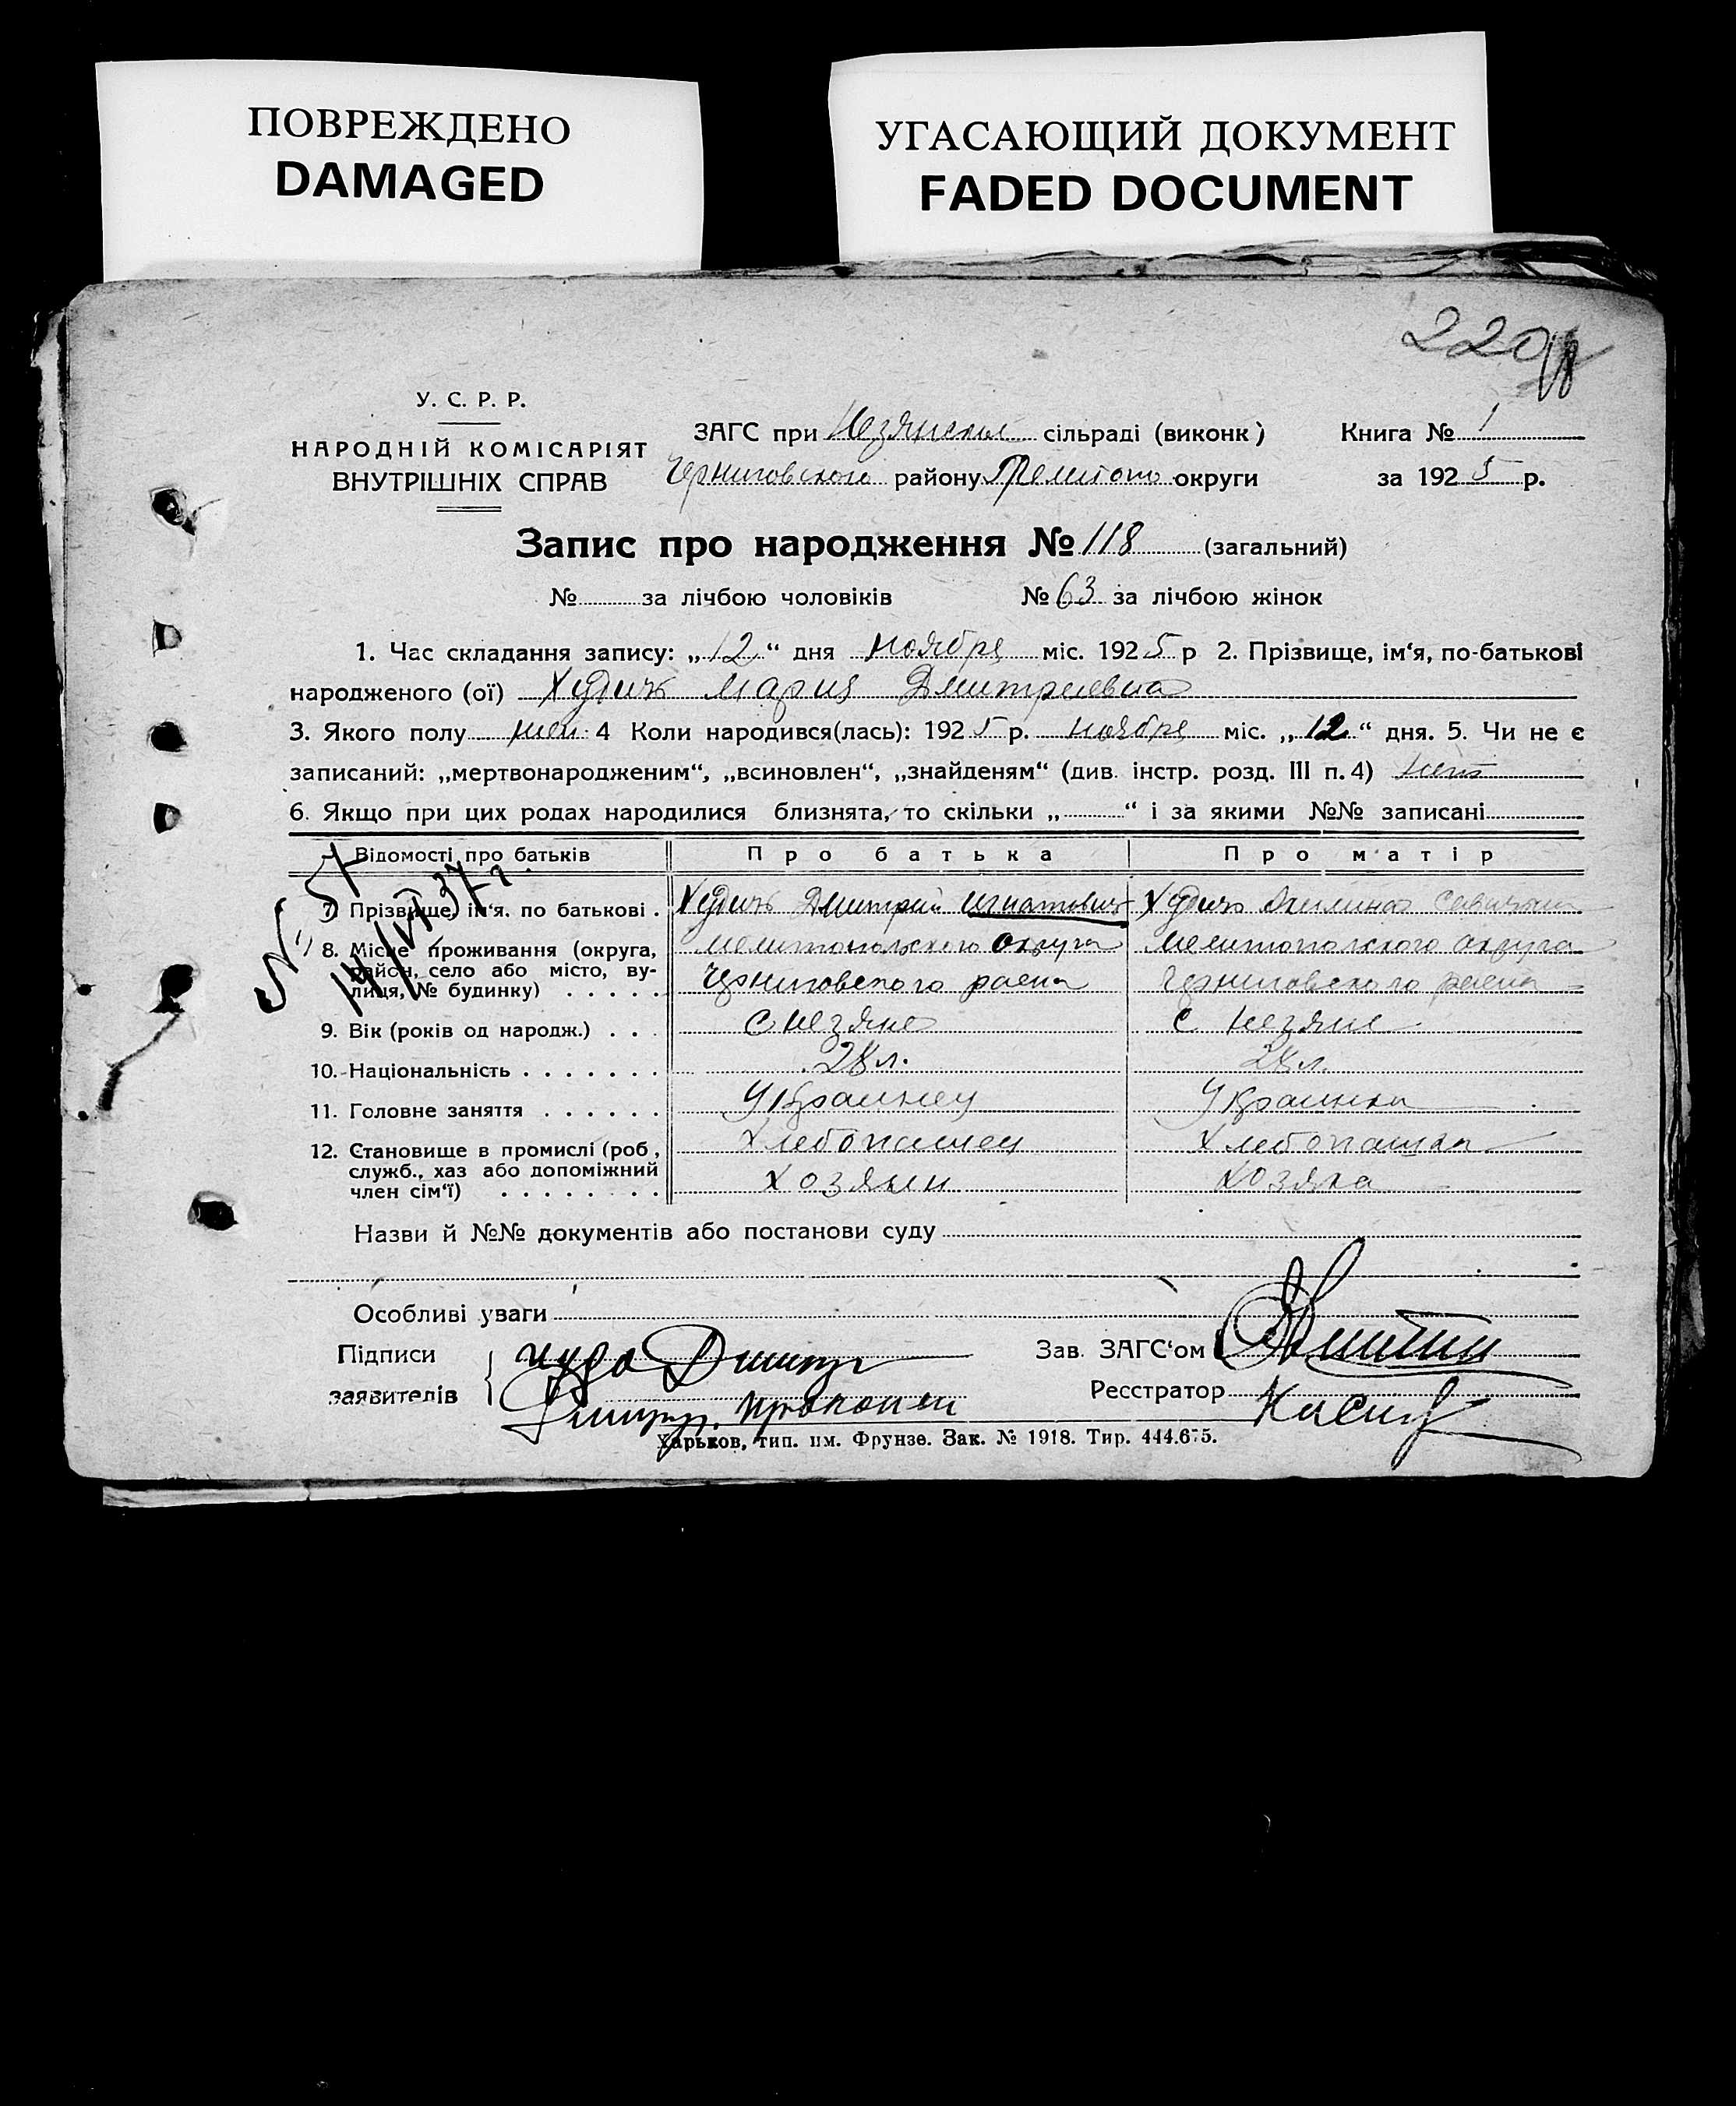 ПОВРЕЖДЕНО
DAMAGED
УГАСАЮЩИЙ ДОКУМЕНТ
FADED DOCUMENT
220
У. С. Р. Р.
НАРОДНІЙ КОМІСАРІЯТ
ВНУТРІШНІХ СПРАВ
ЗАГС при сільраді (виконк) Книга № 1
Черниговского району округи за 1925 р.
Запис про народження № 118 (загальний)
№ за лічбою чоловіків № 63 за лічбою жінок
1. Час складання запису: „12“ дня ноября міс. 1925 р 2. Прізвище, ім‘я, по-батькові
народженого (ої) Мария Дмитриевна
3. Якого полу жен. 4 Коли народився(лась): 1925 р. ноября міс. „12“ дня. 5. Чи не є
записаний: „мертвонародженим“, „всиновлен“, „знайденям“ (див. інстр. розд. III п. 4) нет
6. Якщо при цих родах народилися близнята, то скільки „ “ і за якими №№ записані
Відомості про батьків Про батька Про матір
№ 57
14/VII 37 г.
7. Прізвище, ім‘я. по батькові . Дмитрий Игнатович
8. Місце проживання (округа, Мелитопольского округа Мелитопольского округа
район, село або місто, ву-
лиця, № будинку) . . . . . Черниговского раена Черниговского раена
9. Вік (років од народж.) . . . с Незяне с Незяне
10. Національність . . . . . . . 28 л. 28 л.
11. Головне заняття . . . . . . Украинец Украинка
12. Становище в промислі (роб, Хлебопашец Хлебопашка
служб., хаз або допоміжний
член сім‘ї) . . . . . . . . Хозяин Хозяка
Назви й №№ документів або постанови суду
Особливі уваги
Підписи
заявителів
Зав. ЗАГС‘ом
Реєстратор
Харьков, тип. им. Фрунзе. Зак. № 1918. Тир. 444.675.